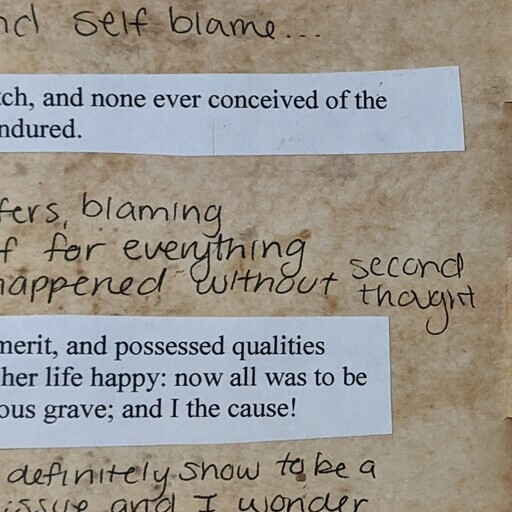 nd self blame...
tch, and none ever conceived of the
ndured.
fers, blaming
f for everything
happened without second
thought
merit, and possessed qualities
her life happy: now all was to be
ous grave; and I the cause!
definitely show to be a
issue and I wonder